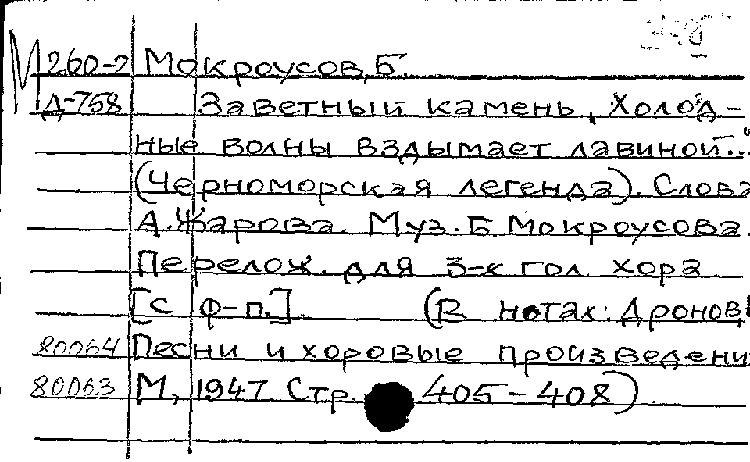 М 260-2 Мокроусов, Б.
Д-758 Заветный камень, „Холод-
ные волны вздымает лавиной..."
(Черноморская легенда). Слова
А. Жарова. Муз. Б Мокроусова.
Перелож. для 3-х гол. хора
[с ф-п.] (В нотах: Дронов,
80064 Песни и хоровые произведени
80063 М, 1947 Стр. 405-408)